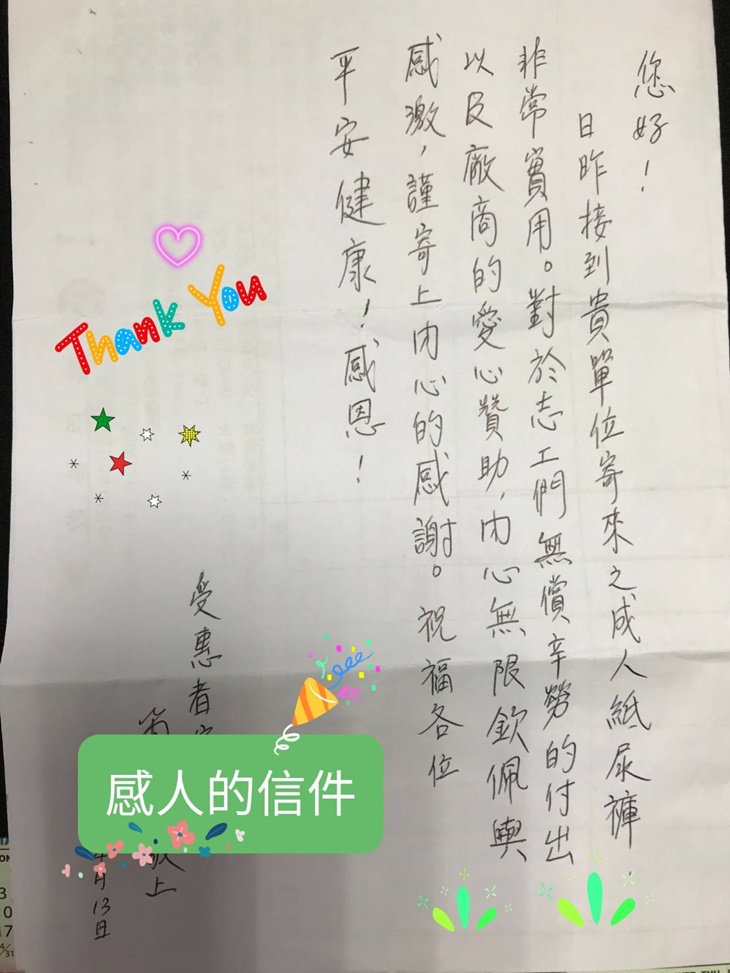 您好！
日昨接到貴單位寄來之成人紙尿褲
非常實用。對於志工們無償辛勞的付出
以及廠商的愛心贊助，內心無限欽佩與
感激，謹寄上內心的感謝。祝福各位
平安健康！感恩！
受惠者
敬上
月13日
Thank You
感人的信件